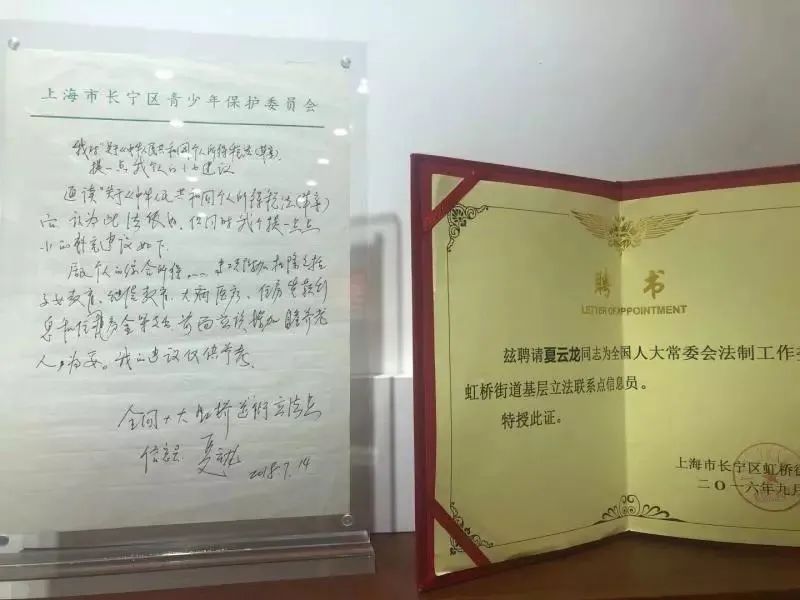 上海市长宁区青少年保护委员会
我对"关于《中华人民共和国个人所得税法(草案)
提一点我个人的小建议
通读"关于《中华人民共和国个人所得税法(草案)
后认为此法很好,但同时我个提一点点
小的补充建议如下.
居民个人的综合所得……专项附加扣除包括
子女教育、继续教育、大病医疗、住房贷款利
息和住房租金等支出 前面应该增加赡养老
人为妥。我的建议仅供参考.
全国人大虹桥街道立法点
信息员 夏云龙 2018.7.14
聘书
LETTER OF APPOINTMENT
兹聘请夏云龙同志为全国人大常委会法制工作委
虹桥街道基层立法联系点信息员。
特授此证。
上海市长宁区虹桥街
二〇一六年九月